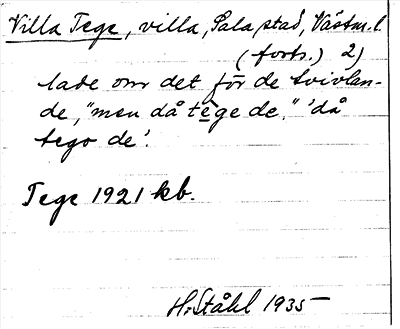 Villa Tege, villa, Sala stad, Västm. l.
(forts.) 2)
lade om det för de tvivlan-
de, "men då tege de." 'då
tego de'.
Tege 1921 kb.
H. Ståhl 1935